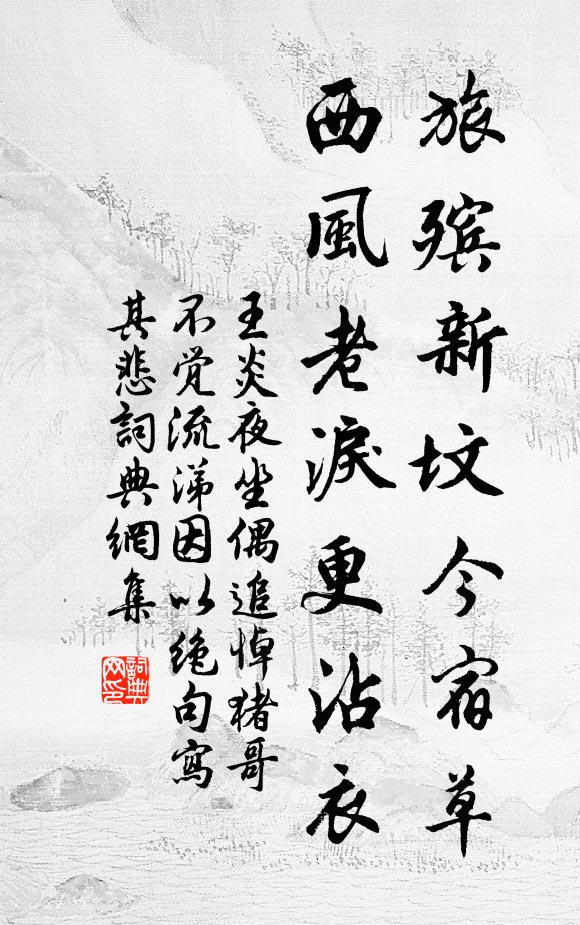 旅殡新坟今宿草
西風老淚更沾衣
王炎夜坐偶追悼猪哥
不觉流涕因以绝句寫
其悲詞典網集
詞典網印